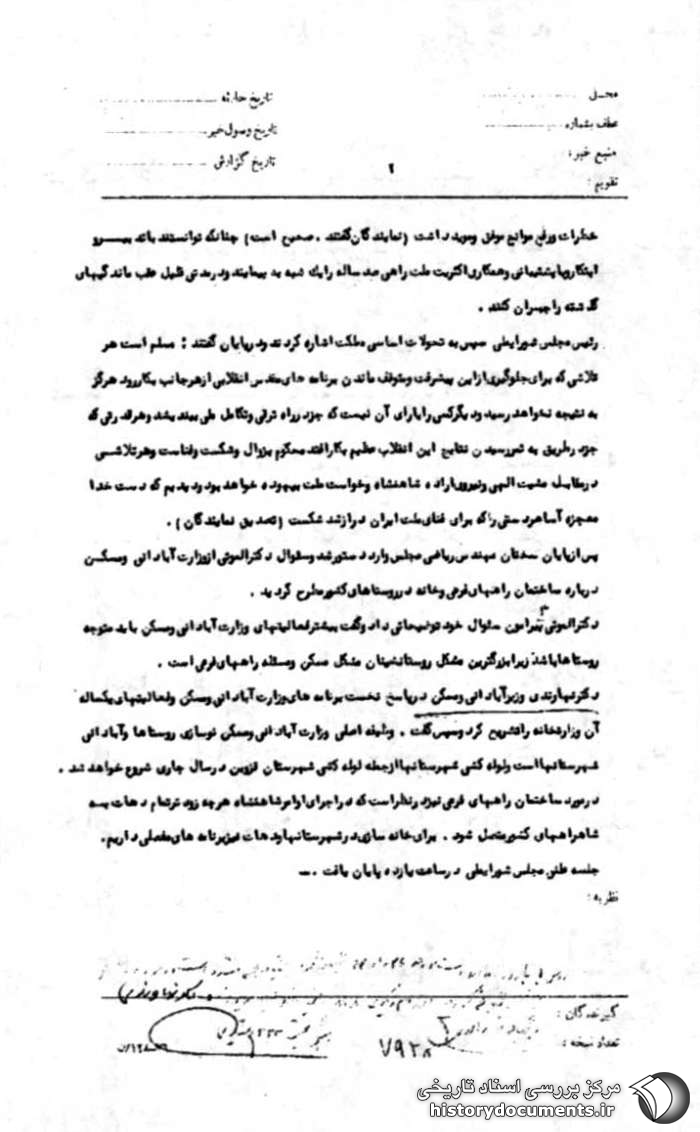 محل ........ تاریخ حادثه ........
عطف بشماره ........ تاریخ وصول خبر ........
منبع خبر : تاریخ گزارش ........
۲
تقویم :
خطرات ورفع موانع موفق وموید داشت (نمایندگان گفتند . صحیح است) چنانکه توانستند باند
ابتکاروباپشتیبانی وهمکاری اکثریت ملت راهی صد ساله رایك شبه به پیمایند ودرمدتی قلیل عقب ماندگیهای
گذشته را جبران کنند .
رئیس مجلس شورایملی سپس به تحولات اساسی مملکت اشاره کردند ودرپایان گفتند : مسلم است هر
تلاشی که برای جلوگیری ازاین پیشرفت ومتوقف ماندن برنامه های مقدس انقلابی ازهرجانب بکاررود هرگز
به نتیجه نخواهد رسید ودیگرکسی رایارای آن نیست که جزدرراه ترقی وتکامل ملی بیندیشد وهرقدرتی که
جزدرطریق به ثمررسیدن نتایج این انقلاب عظیم بکارافتد محکوم بزوال وشکست وفناست وهرتلاشی
درمقابل مشیت الهی ونیروی اراده شاهنشاه وخواست ملت بیهوده خواهد بود ودیدیم که دست خدا
معجزه آسا هردستی راکه برای فنای ملت ایران درازشد شکست (تصدیق نمایندگان) .
پس ازپایان سخنان مهندس ریاضی مجلس وارد دستورشد وسئوال دکترالموتی ازوزارت آبادانی ومسکن
درباره ساختمان راههای فرعی وخانه درروستاهای کشورمطرح گردید .
دکترالموتی پیرامون سئوال خود توضیحاتی داد وگفت بیشترفعالیتهای وزارت آبادانی ومسکن باید متوجه
روستاهاباشد زیرابزرگترین مشکل روستانشینان مشکل مسکن ومسئله راههای فرعی است .
دکترنهاوندی وزیرآبادانی ومسکن درپاسخ نخست برنامه های وزارت آبادانی ومسکن وفعالیتهای یکساله
آن وزارتخانه راتشریح کرد وسپس گفت . وظیفه اصلی وزارت آبادانی ومسکن نوسازی روستاها وآبادانی
شهرستانهااست ولوله کشی شهرستانها ازجمله لوله کشی شهرستان قزوین درسال جاری شروع خواهد شد .
درمورد ساختمان راههای فرعی نیزدرنظراست که دراجرای اوامرشاهنشاه هرچه زود ترتمام دهات به
شاهراههای کشورمتصل شود . برای خانه سازی درشهرستانهاودهات نیزبرنامه های مفصلی داریم.
جلسه علنی مجلس شورایملی درساعت یازده پایان یافت .—
نظریه :
گیرندگان :
تعداد نسخه : ۷۹۲۸
مرکز بررسی اسناد تاریخی
historydocuments.ir